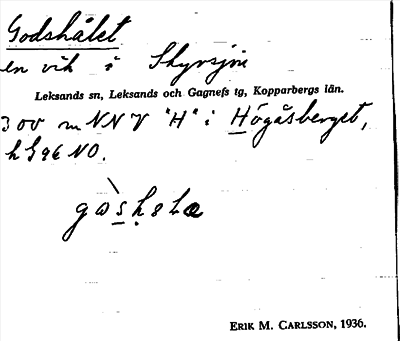 Godshålet
en vik i Styrsjön
Leksands sn, Leksands och Gagnefs tg, Kopparbergs län.
300 m NNV "H" i Högåsberget,
h 596 NO.
ERIK M. CARLSSON, 1936.